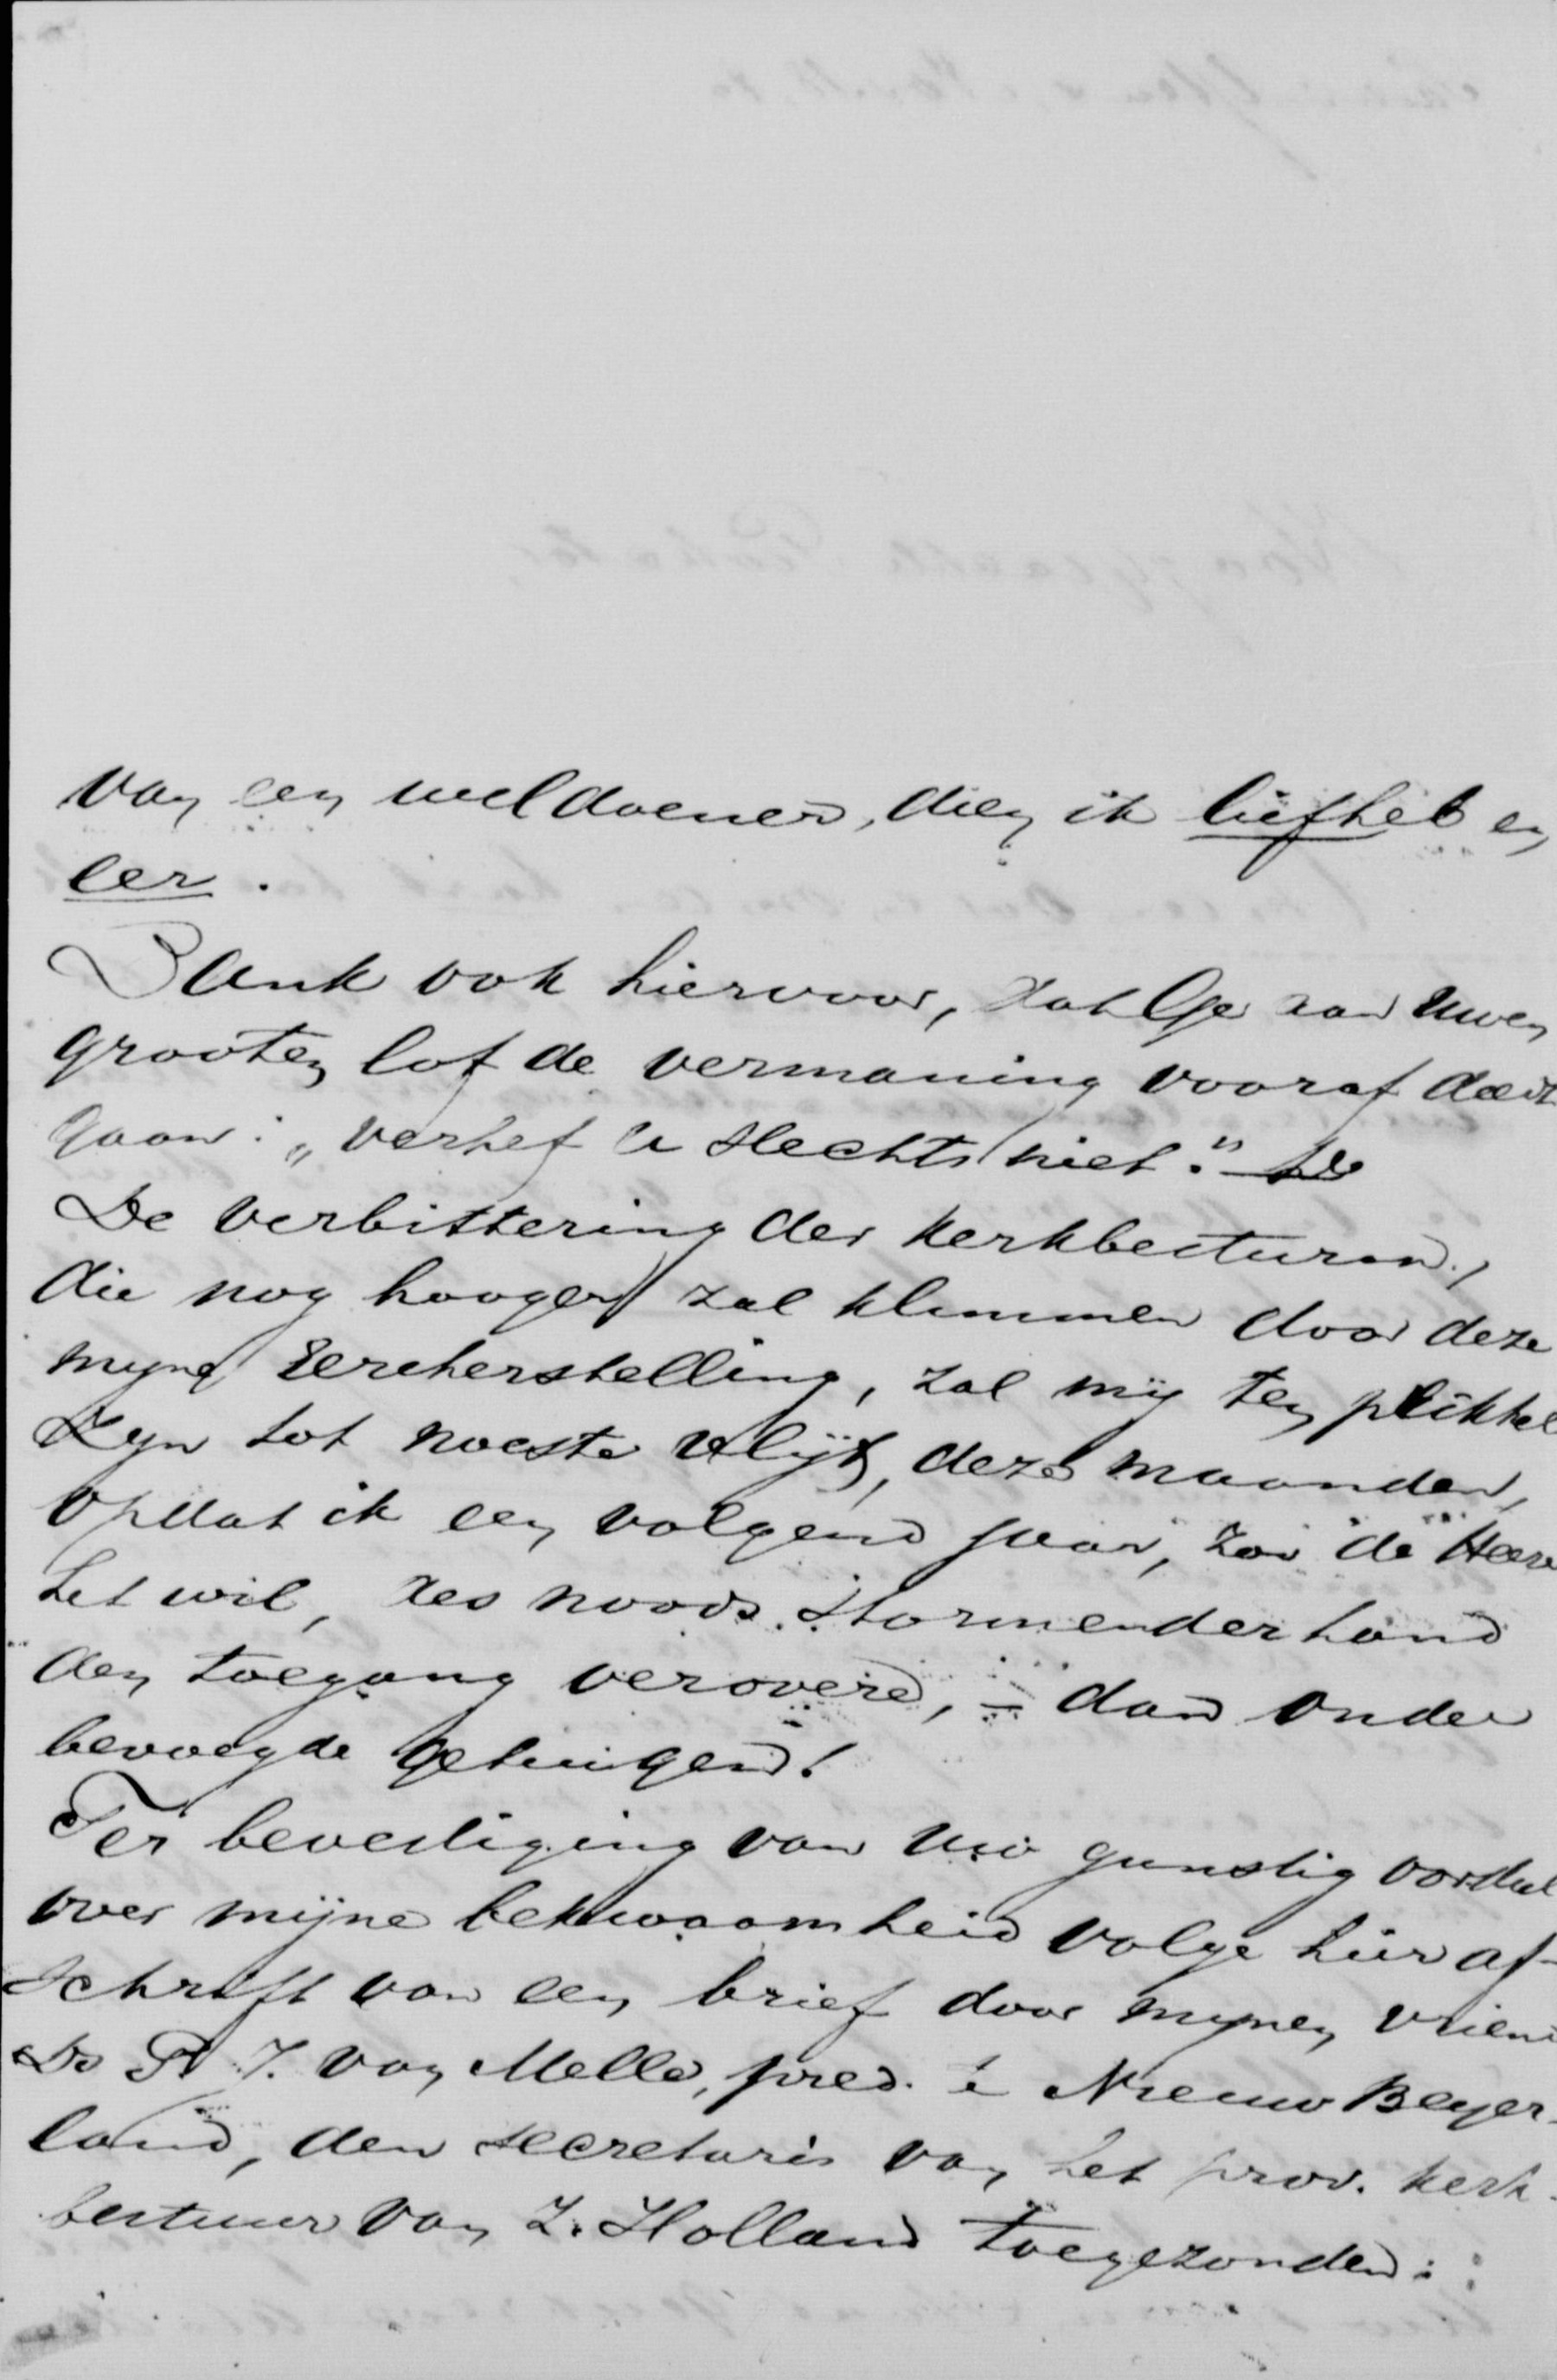 van een weldoener, dien ik liefheb en
eer.
Dank ook hiervoor, dat Ge aan uwen
grooten lof de vermaning vooraf deedt
gaan: „verhef u slechts niet." De
De verbittering der kerkbesturen,
die nog hooger zal klimmen door deze
mijne eerherstelling, zal mij ten prikkel
zijn tot noeste vlijt, deze maanden,
opdat ik een volgend jaar, zoo de Heere
het wil, des noods stormenderhand
den toegang verovere, – dan onder
bevoegde getuigen!
Ter bevestiging van uw gunstig oordeel
over mijne bekwaamheid volge hier af-
schrift van een brief door mijnen vriend
Ds P J. van Melle, pred. te Nieuw Beyer-
land, den secretaris van het prov. kerk-
bestuur van Z. Holland toegezonden: